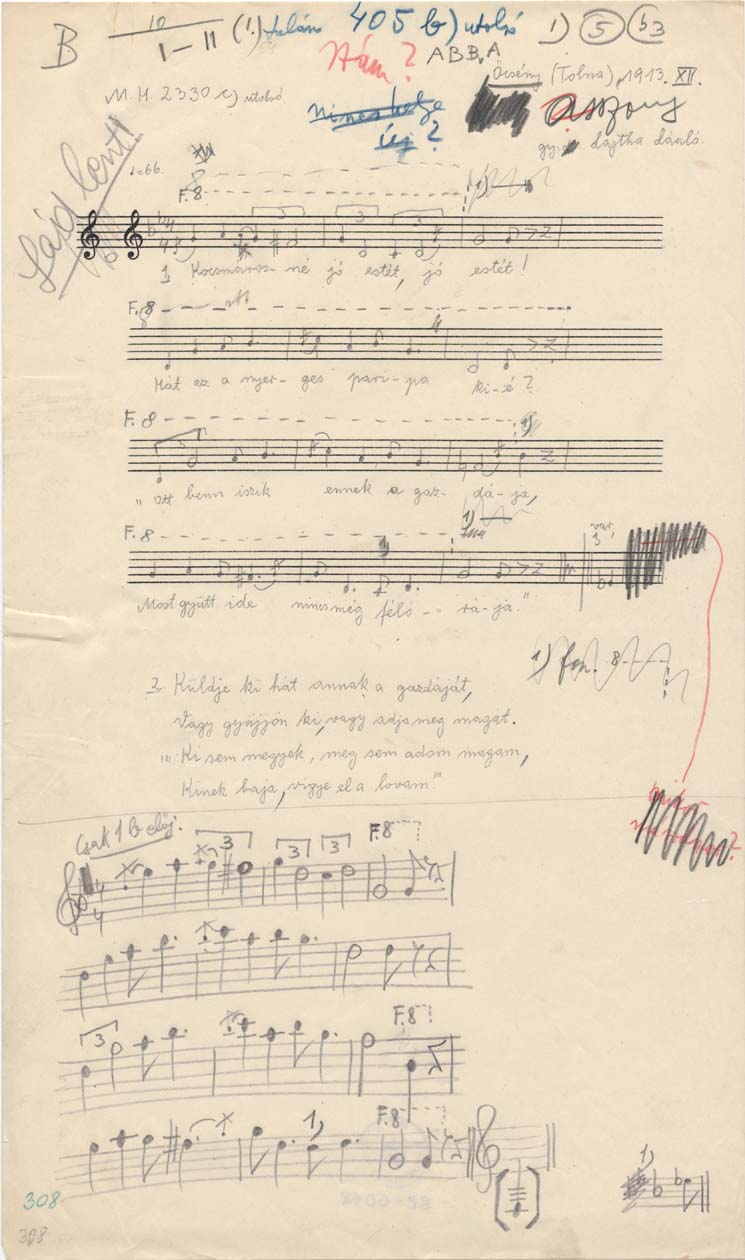 B
10
I-II
(1.) talán 405 b) utolsó
1) 5 b3
Hám? ABB A
Őcsény (Tolna), 1913. XII.
M. H. 2330 c) utolsó
nincs helye
új?
asszony
Lajtha László.
Lásd lent!
♩=66.
F. 8
1)
3 3 3
4
4
1 Kocsmáros-né jó estét, jó estét!
F. 8
Hát ez a nyer-ges pari-pa ki-é?
F. 8
1)
3
"Ott benn iszik ennek a gaz-dá-ja,
F. 8
1)
Most gyütt ide nincs még féló-rá-ja."
var.
3
1) fon. 8
2. Küldje ki hát annak a gazdáját,
Vagy gyüjjön ki, vagy adja meg magát.
"Ki sem megyek, meg sem adom magam,
Kinek baja, vigye el a lovam!"
Csak 1 b előj.
3 3 3
F. 8
4
4
3
F. 8
1)
F. 8
1)
308
308